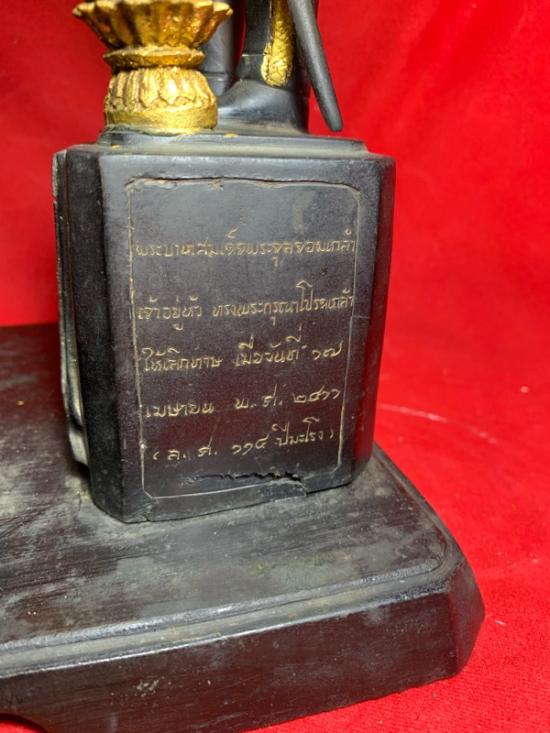 พระบาทสมเด็จพระจุลจอมเกล้า
เจ้าอยู่หัว ทรงพระกรุณาโปรดเกล้า
ให้เลิกทาษ เมื่อวันที่ ๑๗
เมษายน พ.ศ. ๒๔๑๑
(ล.ศ. ๑๑๔ ปีมะโรง)